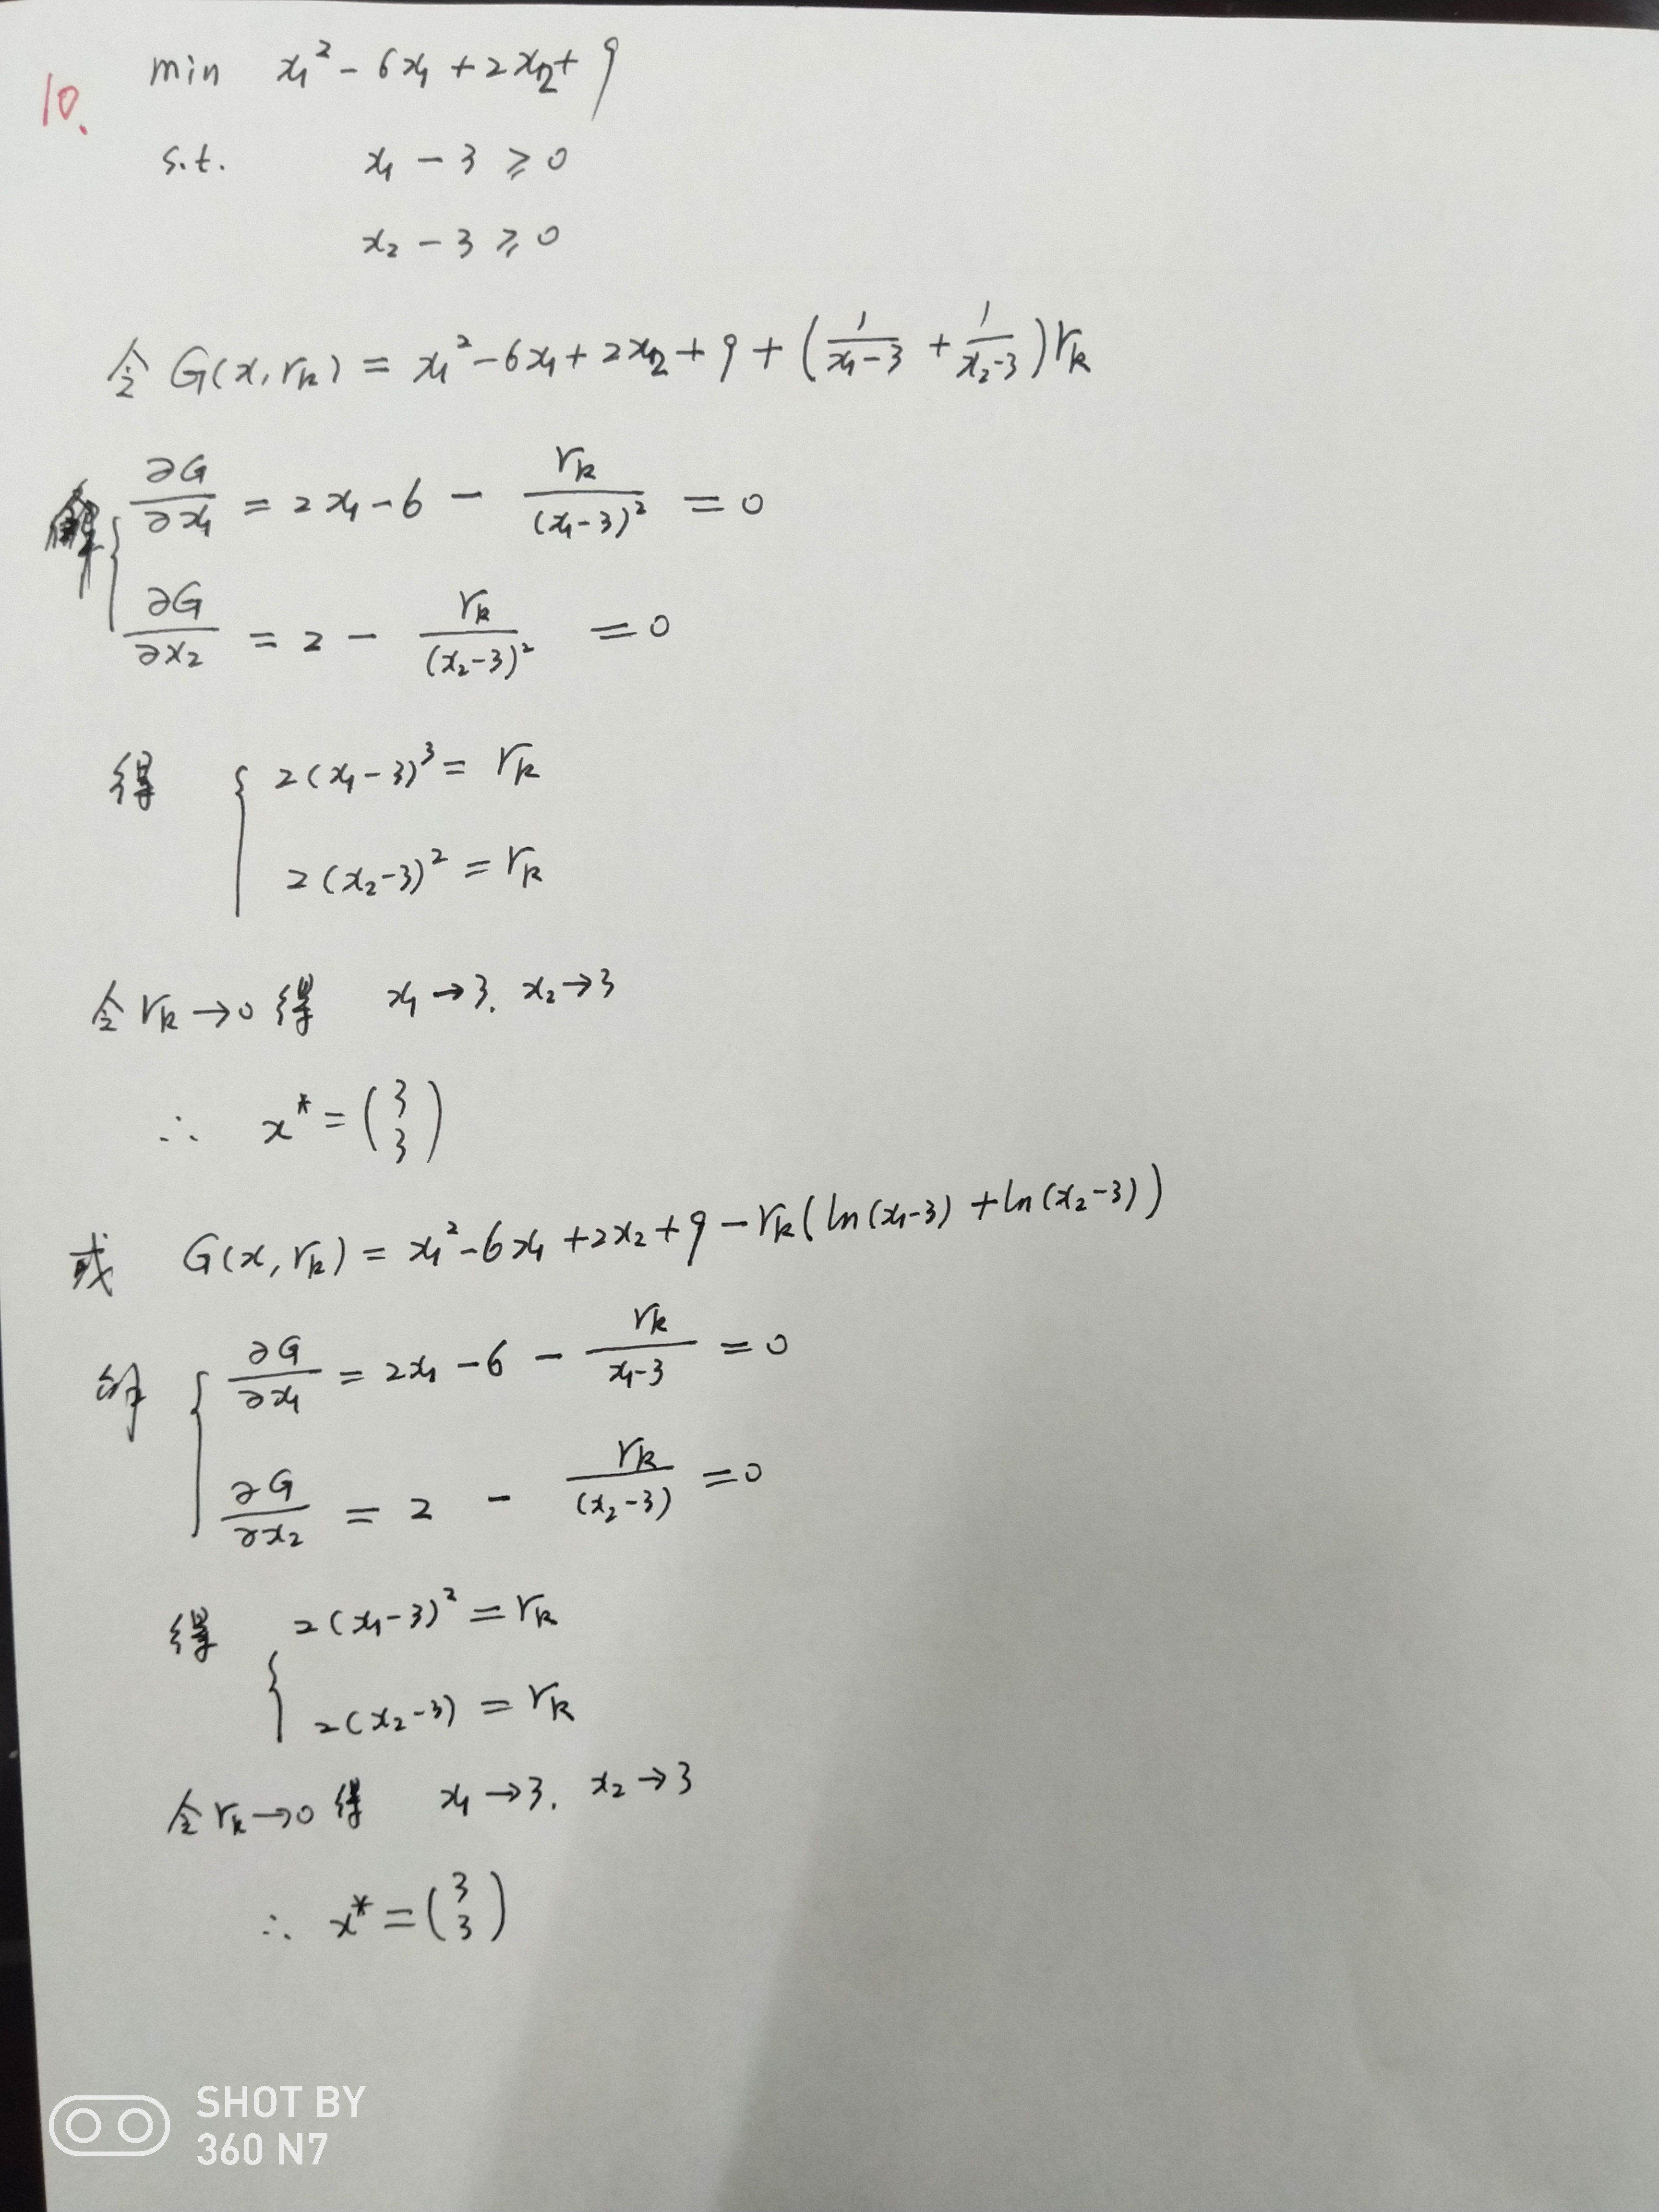 10.
min x₁² - 6x₁ + 2x₂ + 9
s.t. x₁ - 3 ≥ 0
x₂ - 3 ≥ 0
令 G(x, rₖ) = x₁² - 6x₁ + 2x₂ + 9 + (1/(x₁-3) + 1/(x₂-3)) rₖ
解 { ∂G/∂x₁ = 2x₁ - 6 - rₖ/(x₁-3)² = 0
∂G/∂x₂ = 2 - rₖ/(x₂-3)² = 0
得 { 2(x₁-3)³ = rₖ
2(x₂-3)² = rₖ
令 rₖ → 0 得 x₁ → 3. x₂ → 3
∴ x* = (3 3)
或 G(x, rₖ) = x₁² - 6x₁ + 2x₂ + 9 - rₖ(ln(x₁-3) + ln(x₂-3))
解 { ∂G/∂x₁ = 2x₁ - 6 - rₖ/(x₁-3) = 0
∂G/∂x₂ = 2 - rₖ/(x₂-3) = 0
得 { 2(x₁-3)² = rₖ
2(x₂-3) = rₖ
令 rₖ → 0 得 x₁ → 3. x₂ → 3
∴ x* = (3 3)
SHOT BY
360 N7